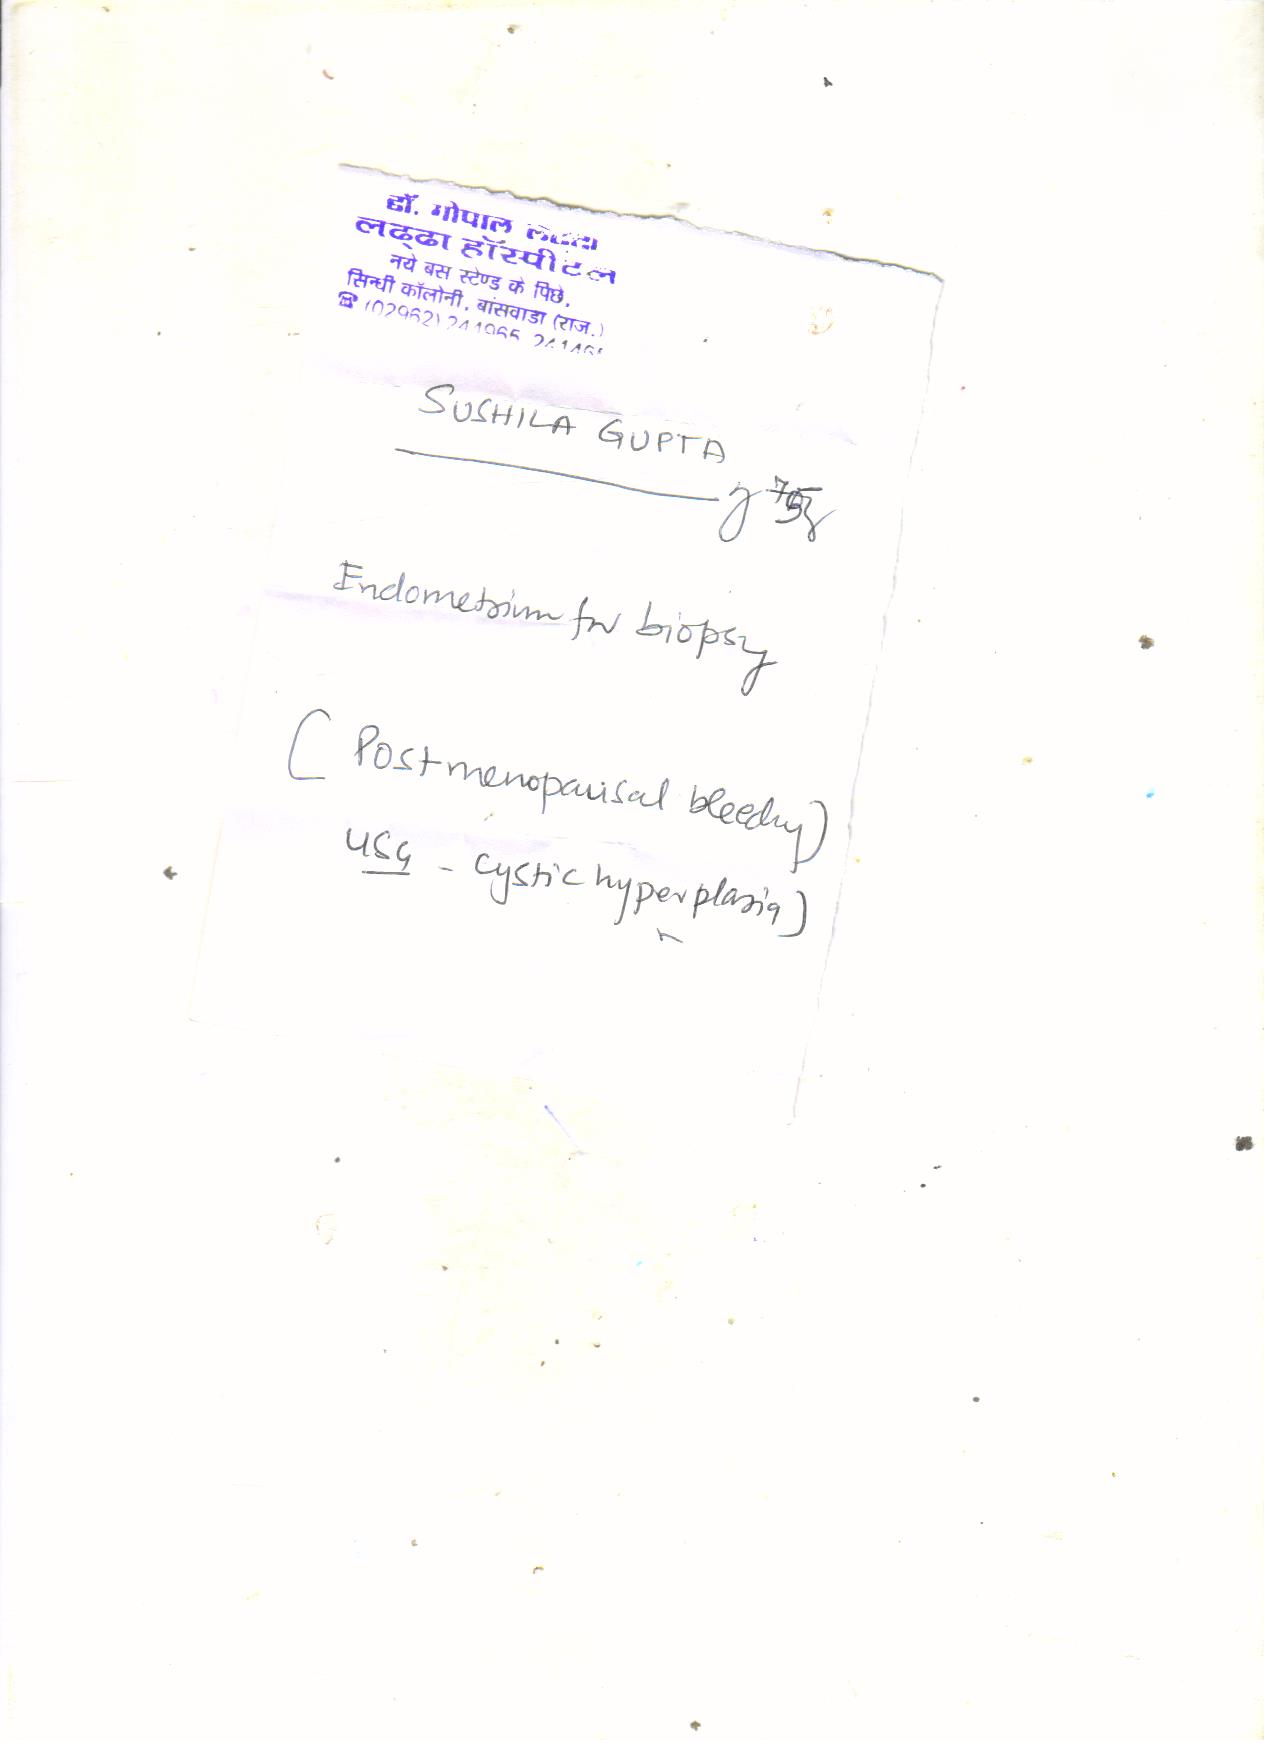 डॉ. गोपाल लढ्ढा
लढ्ढा हॉस्पीटल
नये बस स्टेण्ड के पिछे,
सिन्धी कॉलोनी, बांसवाडा (राज.)
☎ (02962) 241965, 241465
SUSHILA GUPTA
Endometrium for biopsy
( Postmenopausal bleeding)
USG - Cystic hyperplasia)